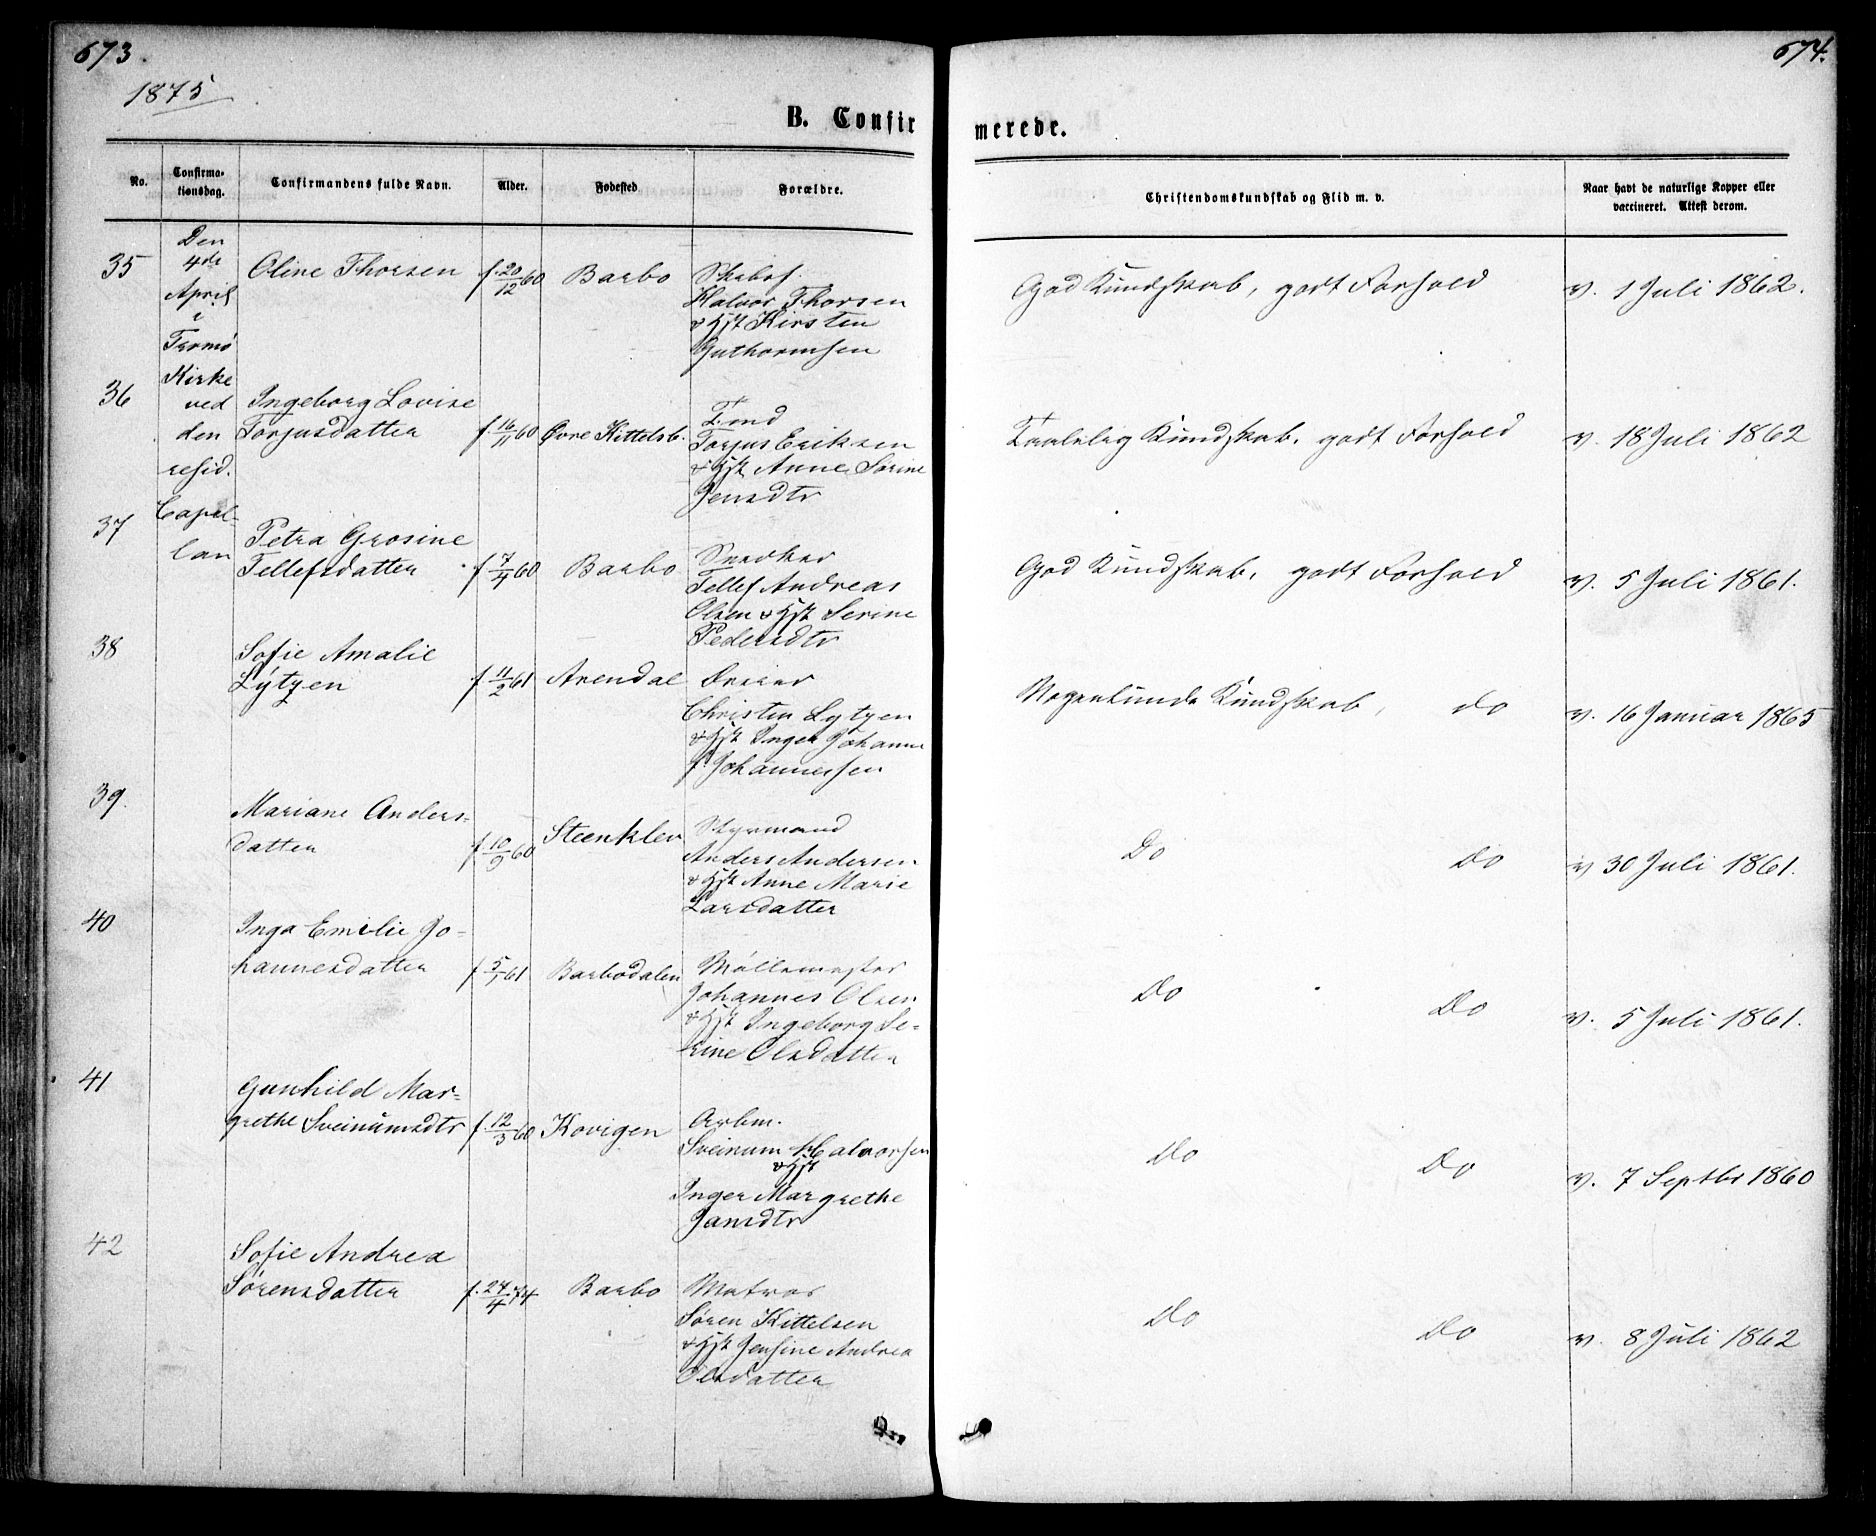 673.
674.
1875
B. Confirmerede.
No.
Confirma-
tionsdag.
Confirmandens fulde Navn.
Alder.
Fødested
Forældre.
Christendomskundskab og Flid m. v.
Naar havt de naturlige Kopper eller
vaccineret. Attest derom.
Den
4de
April
i
Tromø
Kirke
ved
den
resid.
Capel-
lan
35 Oline Thorsen f. 20/12 60 Barbo
Halvor Thorsen
& Hst Kirsten
Guthormsen
God Kundskab, godt Forhold v. 1 Juli 1862.
36 Ingeborg Lovise
Torjusdatter f. 16/11 60 Øvre Kittelsb.
Tørjus Eriksen
& Hst Anne Sørine
Jensdtr
Taalelig Kundskab, godt Forhold v. 18 Juli 1862
37 Petra Grosine
Tellefsdatter f. 7/4 60 Barbo
Snedker
Tellef Andreas
Olsen & Hst Serine
Pedersdtr
God Kundskab, godt Forhold v. 5 Juli 1861.
38 Sofie Amalie
Lytzen f. 11/2 61 Arendal
Dreier
Christen Lytzen
& Hst Inger Johanne
f. Johannesen
Megenkunde Kundskab, do v. 16 Januar 1865
39. Mariane Anders-
datter f. 10/9 60 Steenklev
Styrmand
Anders Andersen
& Hst Anne Marie
Larsdatter
Do Do v 30 Juli 1861.
40 Inga Emilie Jo-
hannesdatter f. 5/1 61 Barbodalen
Møllemester
Johannes Olsen
& Hst Ingeborg Se-
rine Olsdatter
Do Do v. 5 Juli 1861.
41 Gunhild Mar-
grethe Sveinumsdtr f. 12/3 60 Kovigen
Arbm.
Sveinum Halvorsen
& Hst
Inger Margrethe
Jansdtr
Do Do v. 7 Septbr 1860
42 Sofie Andrea
Sørensdatter f. 24/4 74 Barbo
Matros
Søren Kittelsen
& Hst Jensine Andrea
Olsdatter
Do Do v. 8 Juli 1862